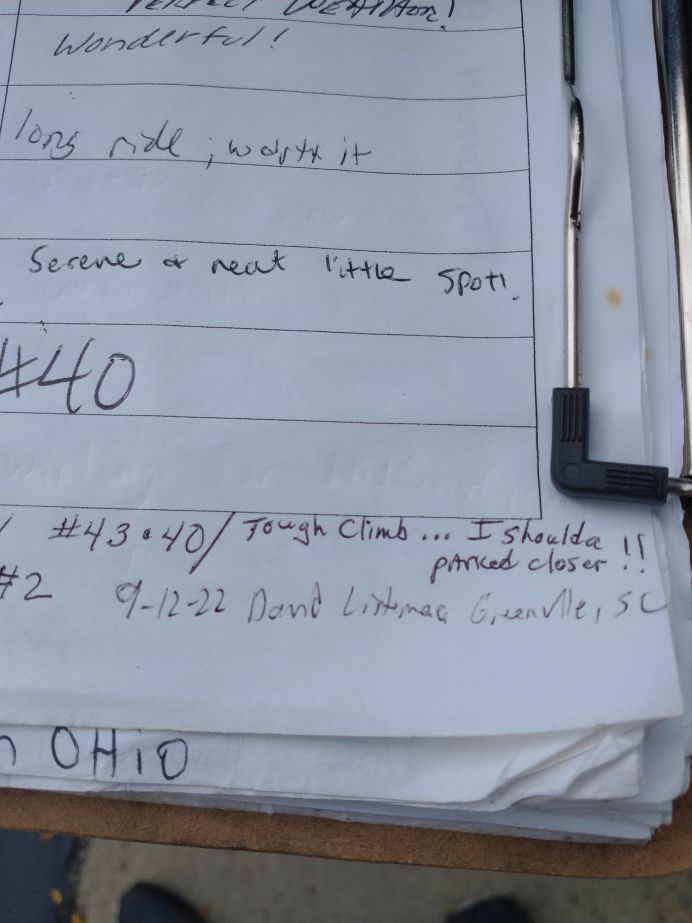 PERFECT WEATHER!
Wonderful!
long ride ; worth it
Serene & neat little spot!
#40
#43 • 40/ Tough Climb... I shoulda
parked closer !!
#2 9-12-22 David Greenville, SC
OHiO